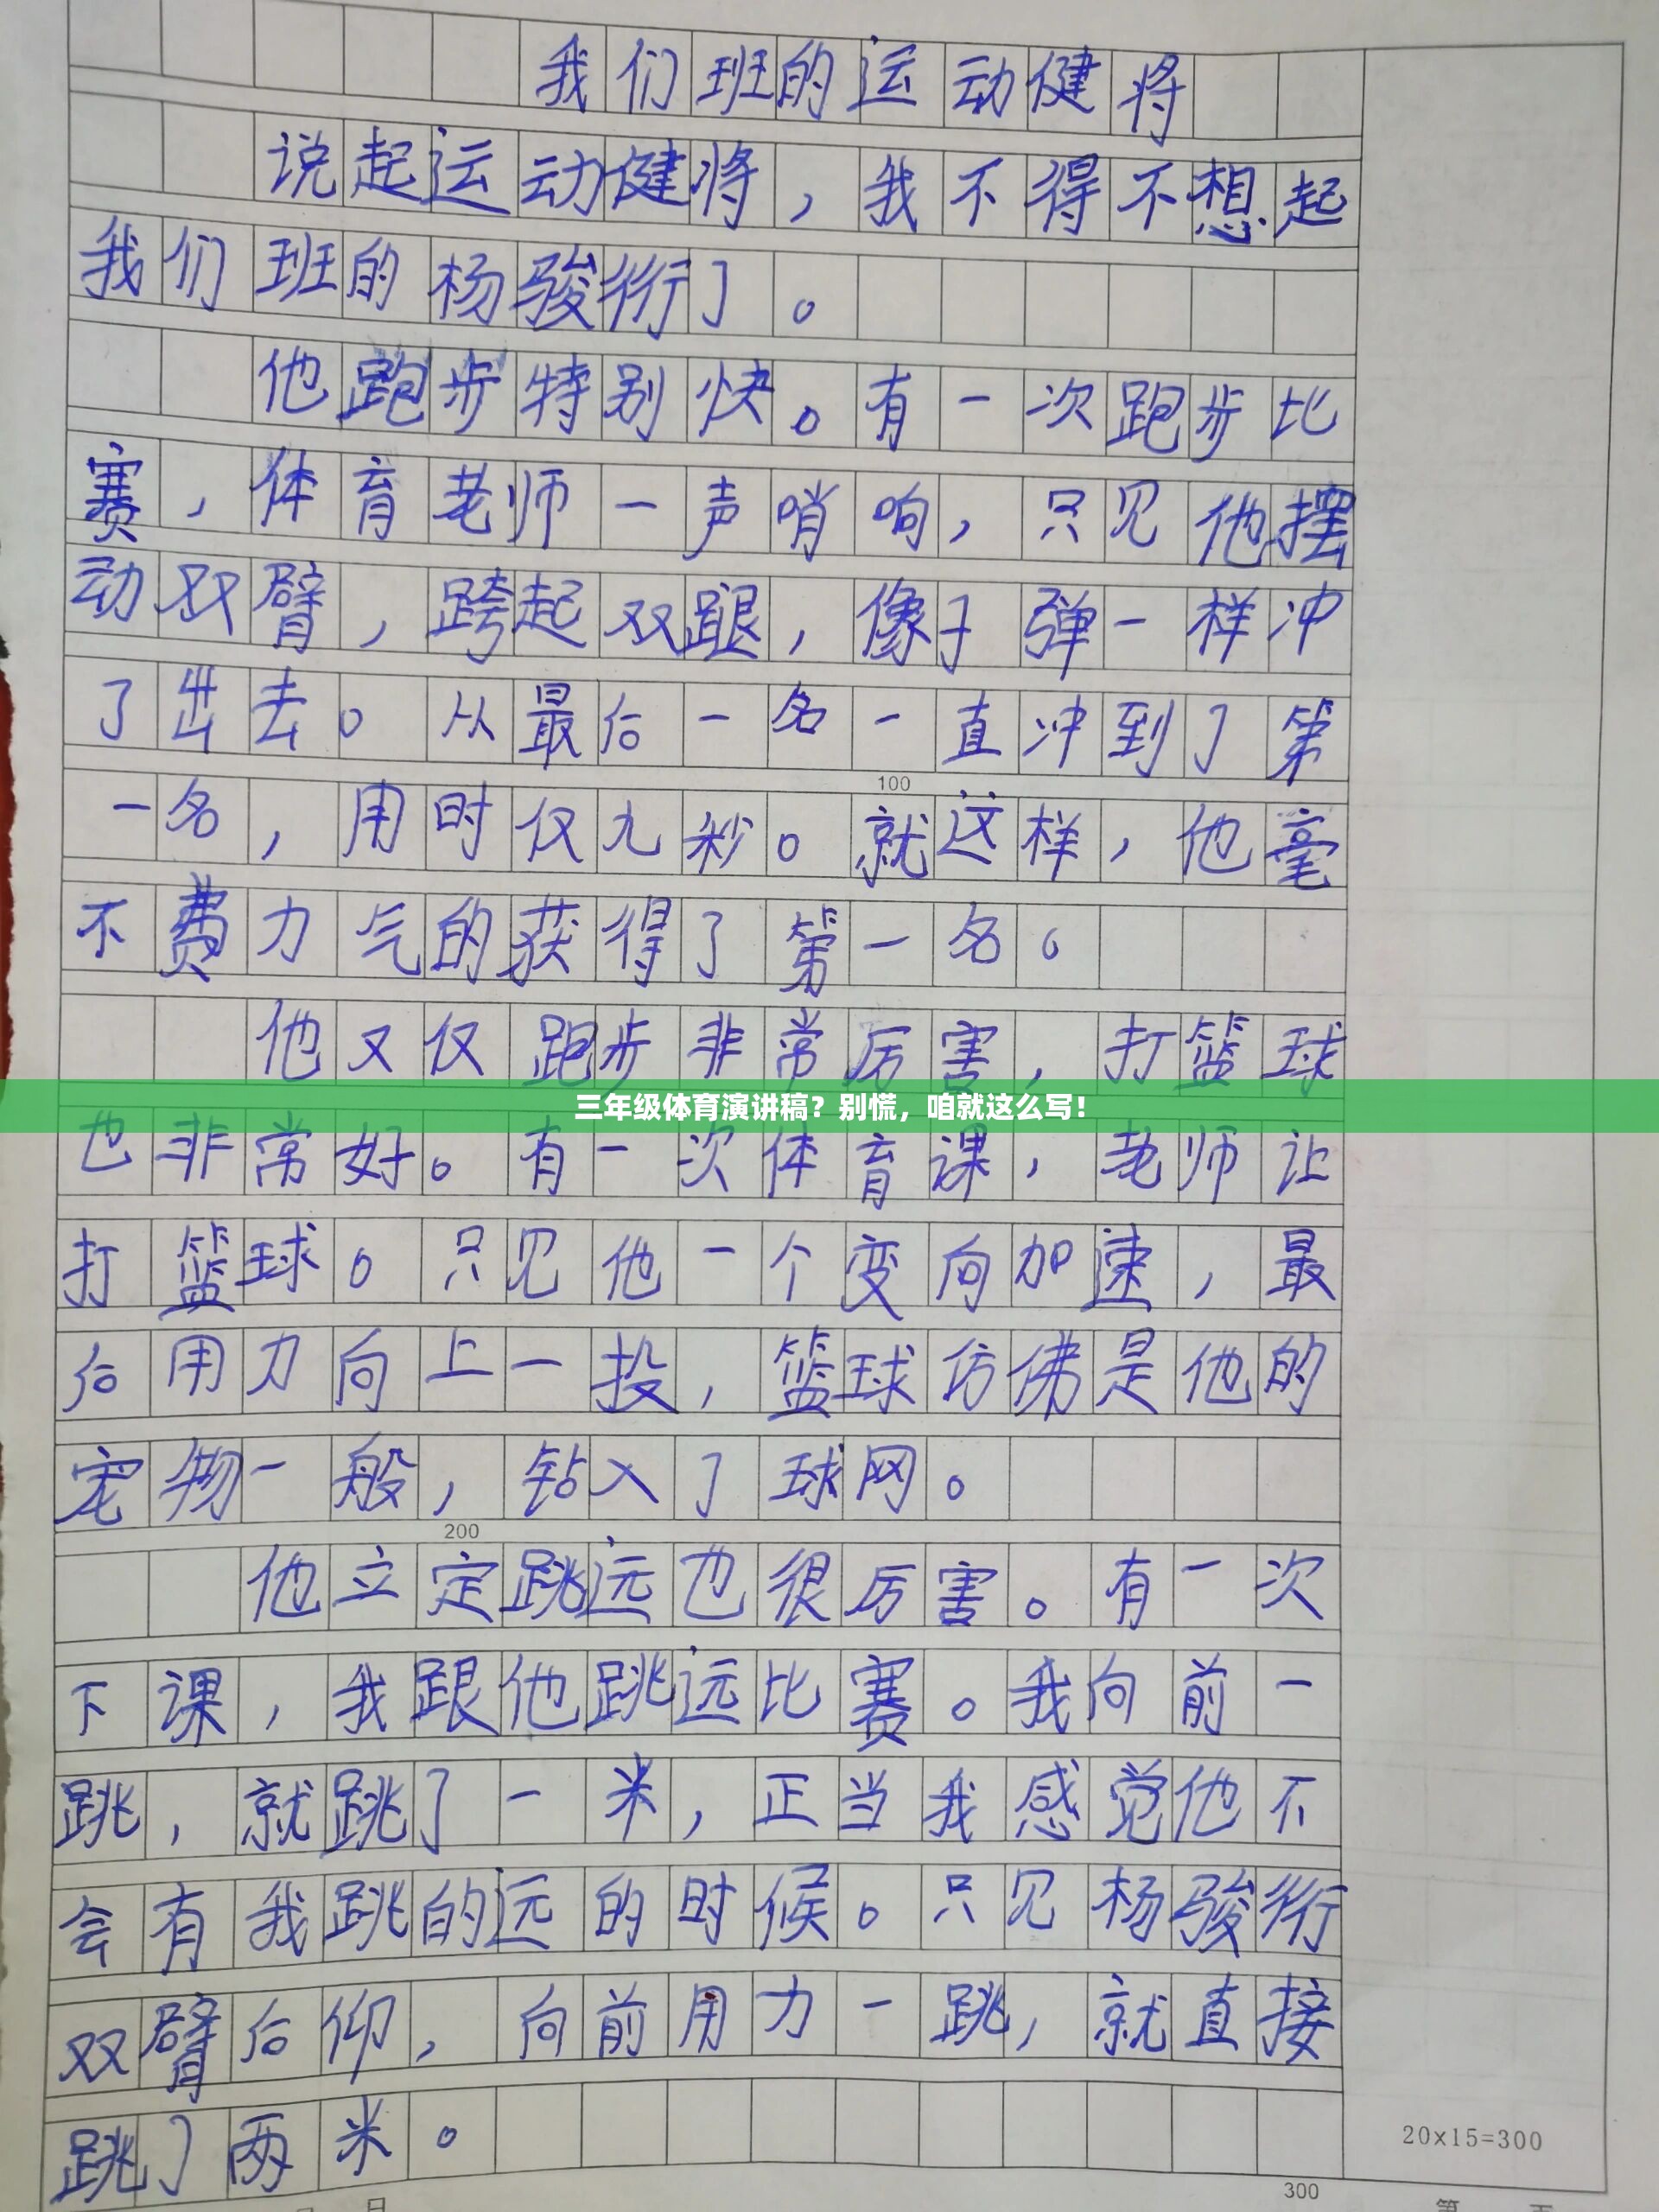 我们班的运动健将
说起运动健将，我不得不想起
我们班的杨骏衍了。
他跑步特别快。有一次跑步比
赛，体育老师一声哨响，只见他摆
动双臂，跨起双腿，像子弹一样冲
了出去。从最后一名一直冲到了第
100
一名，用时仅九秒。就这样，他毫
不费力气的获得了第一名。
他又仅跑步非常厉害，打篮球
三年级体育演讲稿？别慌，咱就这么写！
也非常好。有一次体育课，老师让
打篮球。只见他一个变向加速，最
后用力向上一投，篮球仿佛是他的
宠物一般，钻入了球网。
200
他立定跳远也很厉害。有一次
下课，我跟他跳远比赛。我向前一
跳，就跳了一米，正当我感觉他不
会有我跳的远的时候。只见杨骏衍
双臂后仰，向前用力一跳，就直接
跳了两米。
20×15=300
300